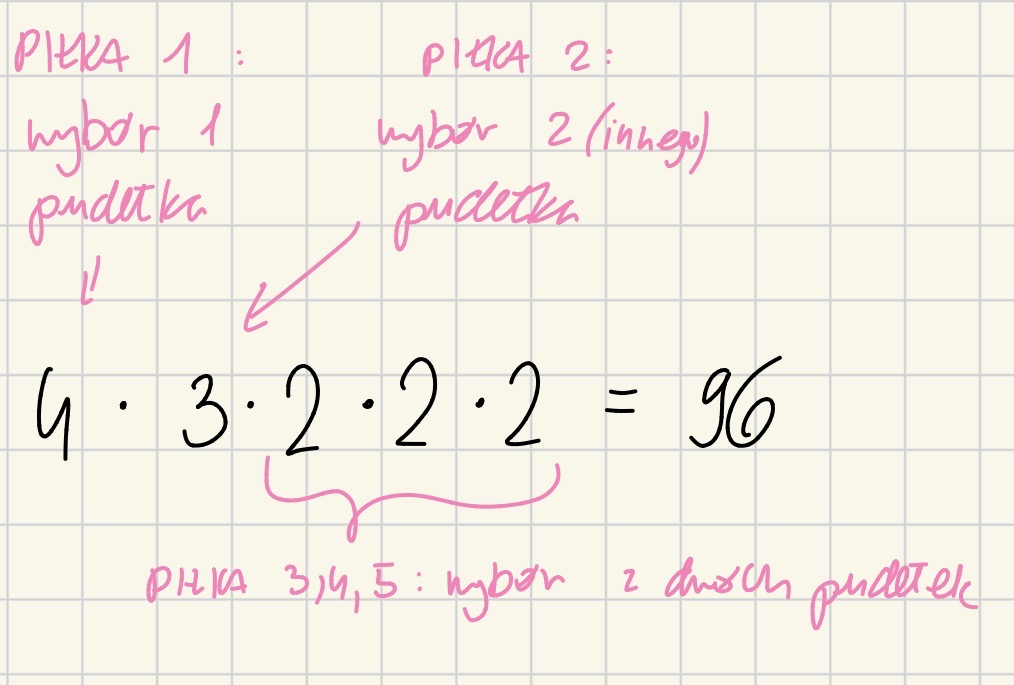 PIŁKA 1:
wybór 1
pudełka
PIŁKA 2:
wybór 2 (innego)
pudełka
4 · 3 · 2 · 2 · 2 = 96
PIŁKA 3,4,5: wybór z dwóch pudełek